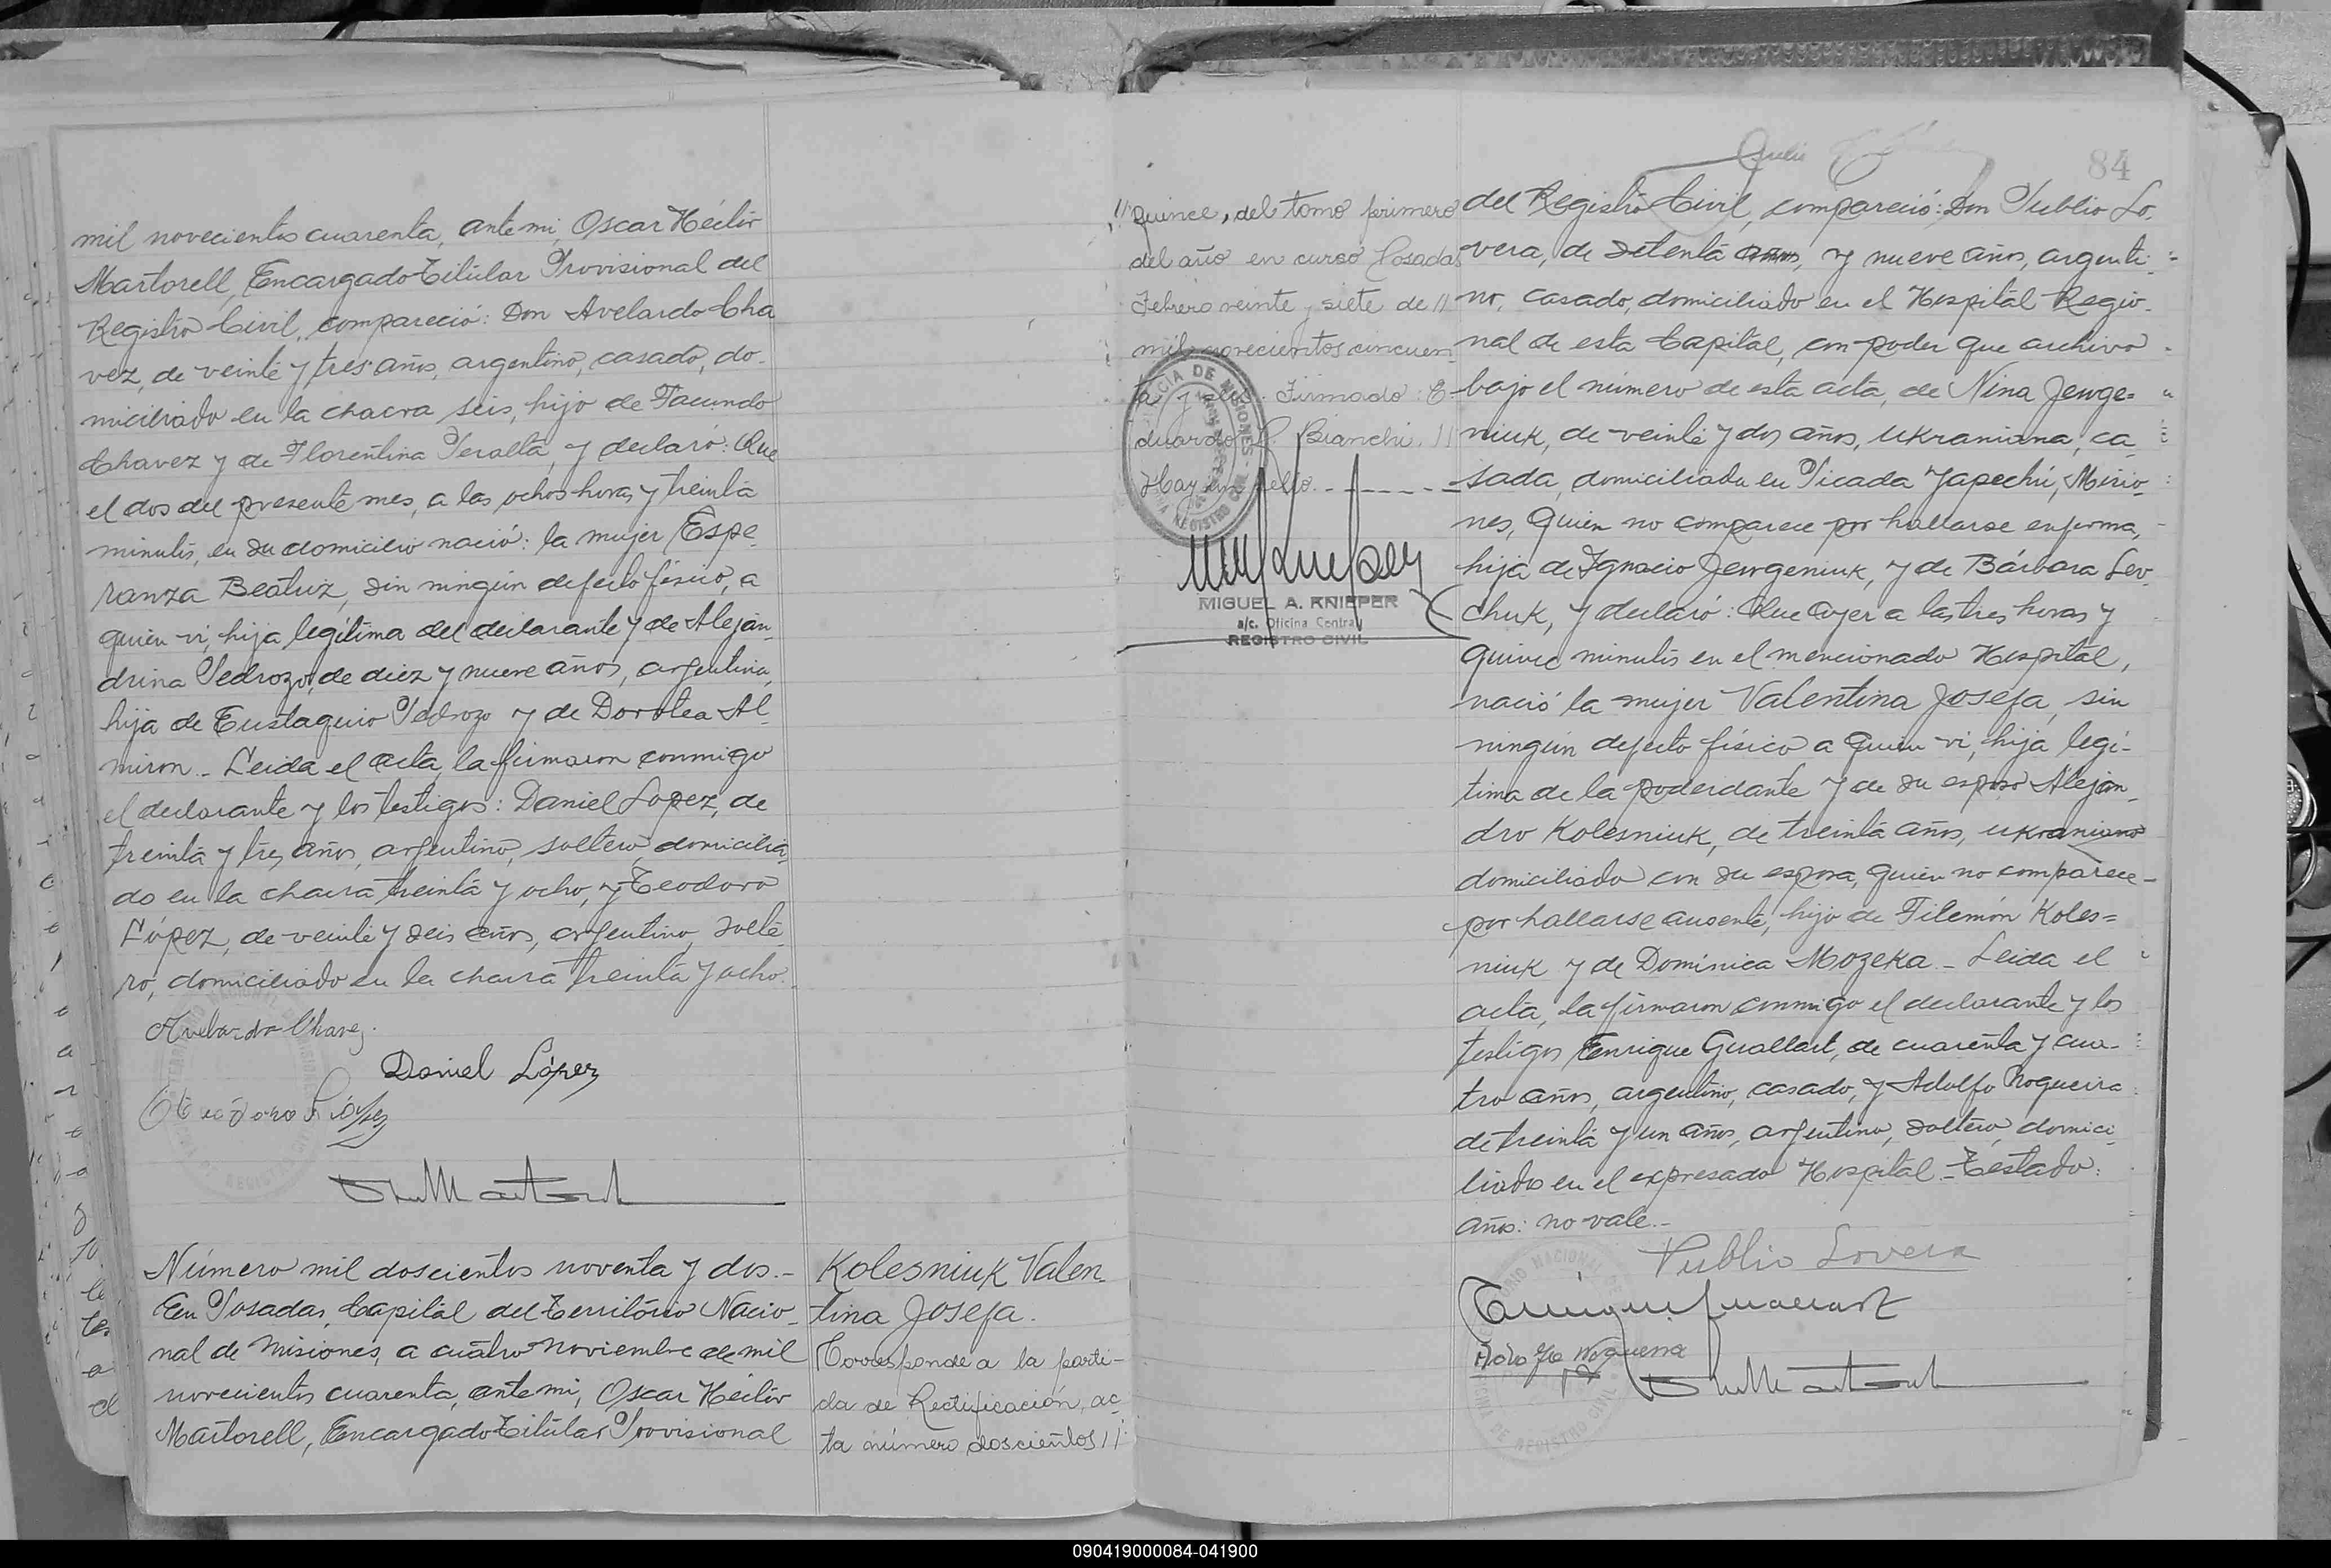 mil novecientos cuarenta, ante mi, Oscar Héctor
Martorell, Encargado Titular Provisional del
Registro Civil, compareció: Don Avelardo Cha
vez, de veinte y tres años, argentino, casado, do-
miciliado en la chacra seis, hijo de Facundo
Chavez y de Florentina Peralta, y declaró: Que
el dos del presente mes, a las ochos horas y treinta
minutos, en su domicilio nació: la mujer Espe-
ranza Beatriz, sin ningún defecto físico, a
quien vi, hija legítima del declarante y de Alejan-
drina Pedrozo, de diez y nueve años, argentina,
hija de Eustaquio Pedrozo y de Dorotea Al-
miron.- Leida el acta, la firmaron conmigo
el declarante y los testigos: Daniel Lopez, de
treinta y tres años, argentino, soltero, domicilia-
do en la chacra treinta y ocho, y Teodoro
López, de veinte y seis años, argentino, solte-
ro, domiciliado en la chacra treinta y ocho.
Avelardo Chavez.
Daniel López
Teodoro López
Número mil doscientos noventa y dos.-
En Posadas, Capital del Territorio Nacio-
nal de Misiones, a cuatro noviembre de mil
novecientos cuarenta, ante mi, Oscar Héctor
Martorell, Encargado Titular Provisional
Kolesniuk Valen-
tina Josefa.
Corresponde a la parti-
da de Rectificación, ac-
ta número doscientos //
84
// quince, del tomo primero
del año en curso Posadas
Febrero veinte y siete de //
mil novecientos cincuen-
ta y Firmado: E-
duardo Bianchi. //
Hay un sello.-------
PROVINCIA DE MISIONES
REGISTRO CIVIL
MIGUEL A. KNIEPER
a/c. Oficina Central
REGISTRO CIVIL
del Registro Civil, compareció: Don Publio Lo-
vera, de setenta años, y nueve años, argenti-
no, casado, domiciliado en el Hospital Regio-
nal de esta Capital, con poder que archivo
bajo el número de esta acta, de Nina Jewge=
niuk, de veinte y dos años, ukraniana, ca-
sada, domiciliada en Picada Yapeyú, Misio-
nes, quien no comparece por hallarse enferma,
hija de Ignacio Jewgeniuk, y de Bárbara Lev-
chuk, y declaró: Que ayer a las tres horas y
quince minutos en el mencionado Hospital,
nació la mujer Valentina Josefa, sin
ningún defecto físico a quien vi, hija legí-
tima de la poderdante y de su esposo Alejan-
dro Kolesniuk, de treinta años, ukraniano
domiciliado con su esposa, quien no comparece-
por hallarse ausente, hijo de Filemón Koles=
niuk y de Dominica Mozeka.- Leida el
acta, la firmaron conmigo el declarante y los
testigos Enrique Guallart, de cuarenta y cua-
tro años, argentino, casado, y Adolfo Nogueira
de treinta y un años, argentino, soltero, domici-
liados en el expresado Hospital.- Testado:
años: no vale.-
Publio Lovera
Enrique Guallart
Adolfo Nogueira
090419000084-041900